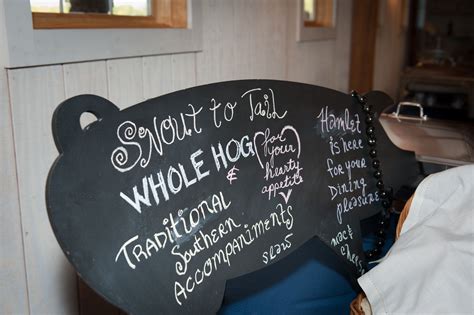 Snout to Tail
WHOLE HOG
&
for
your
hearty
appetite
Traditional
Southern
Accompaniments
slaw
Hamlet
is here
for your
Dining
pleasure
mac &
cheese